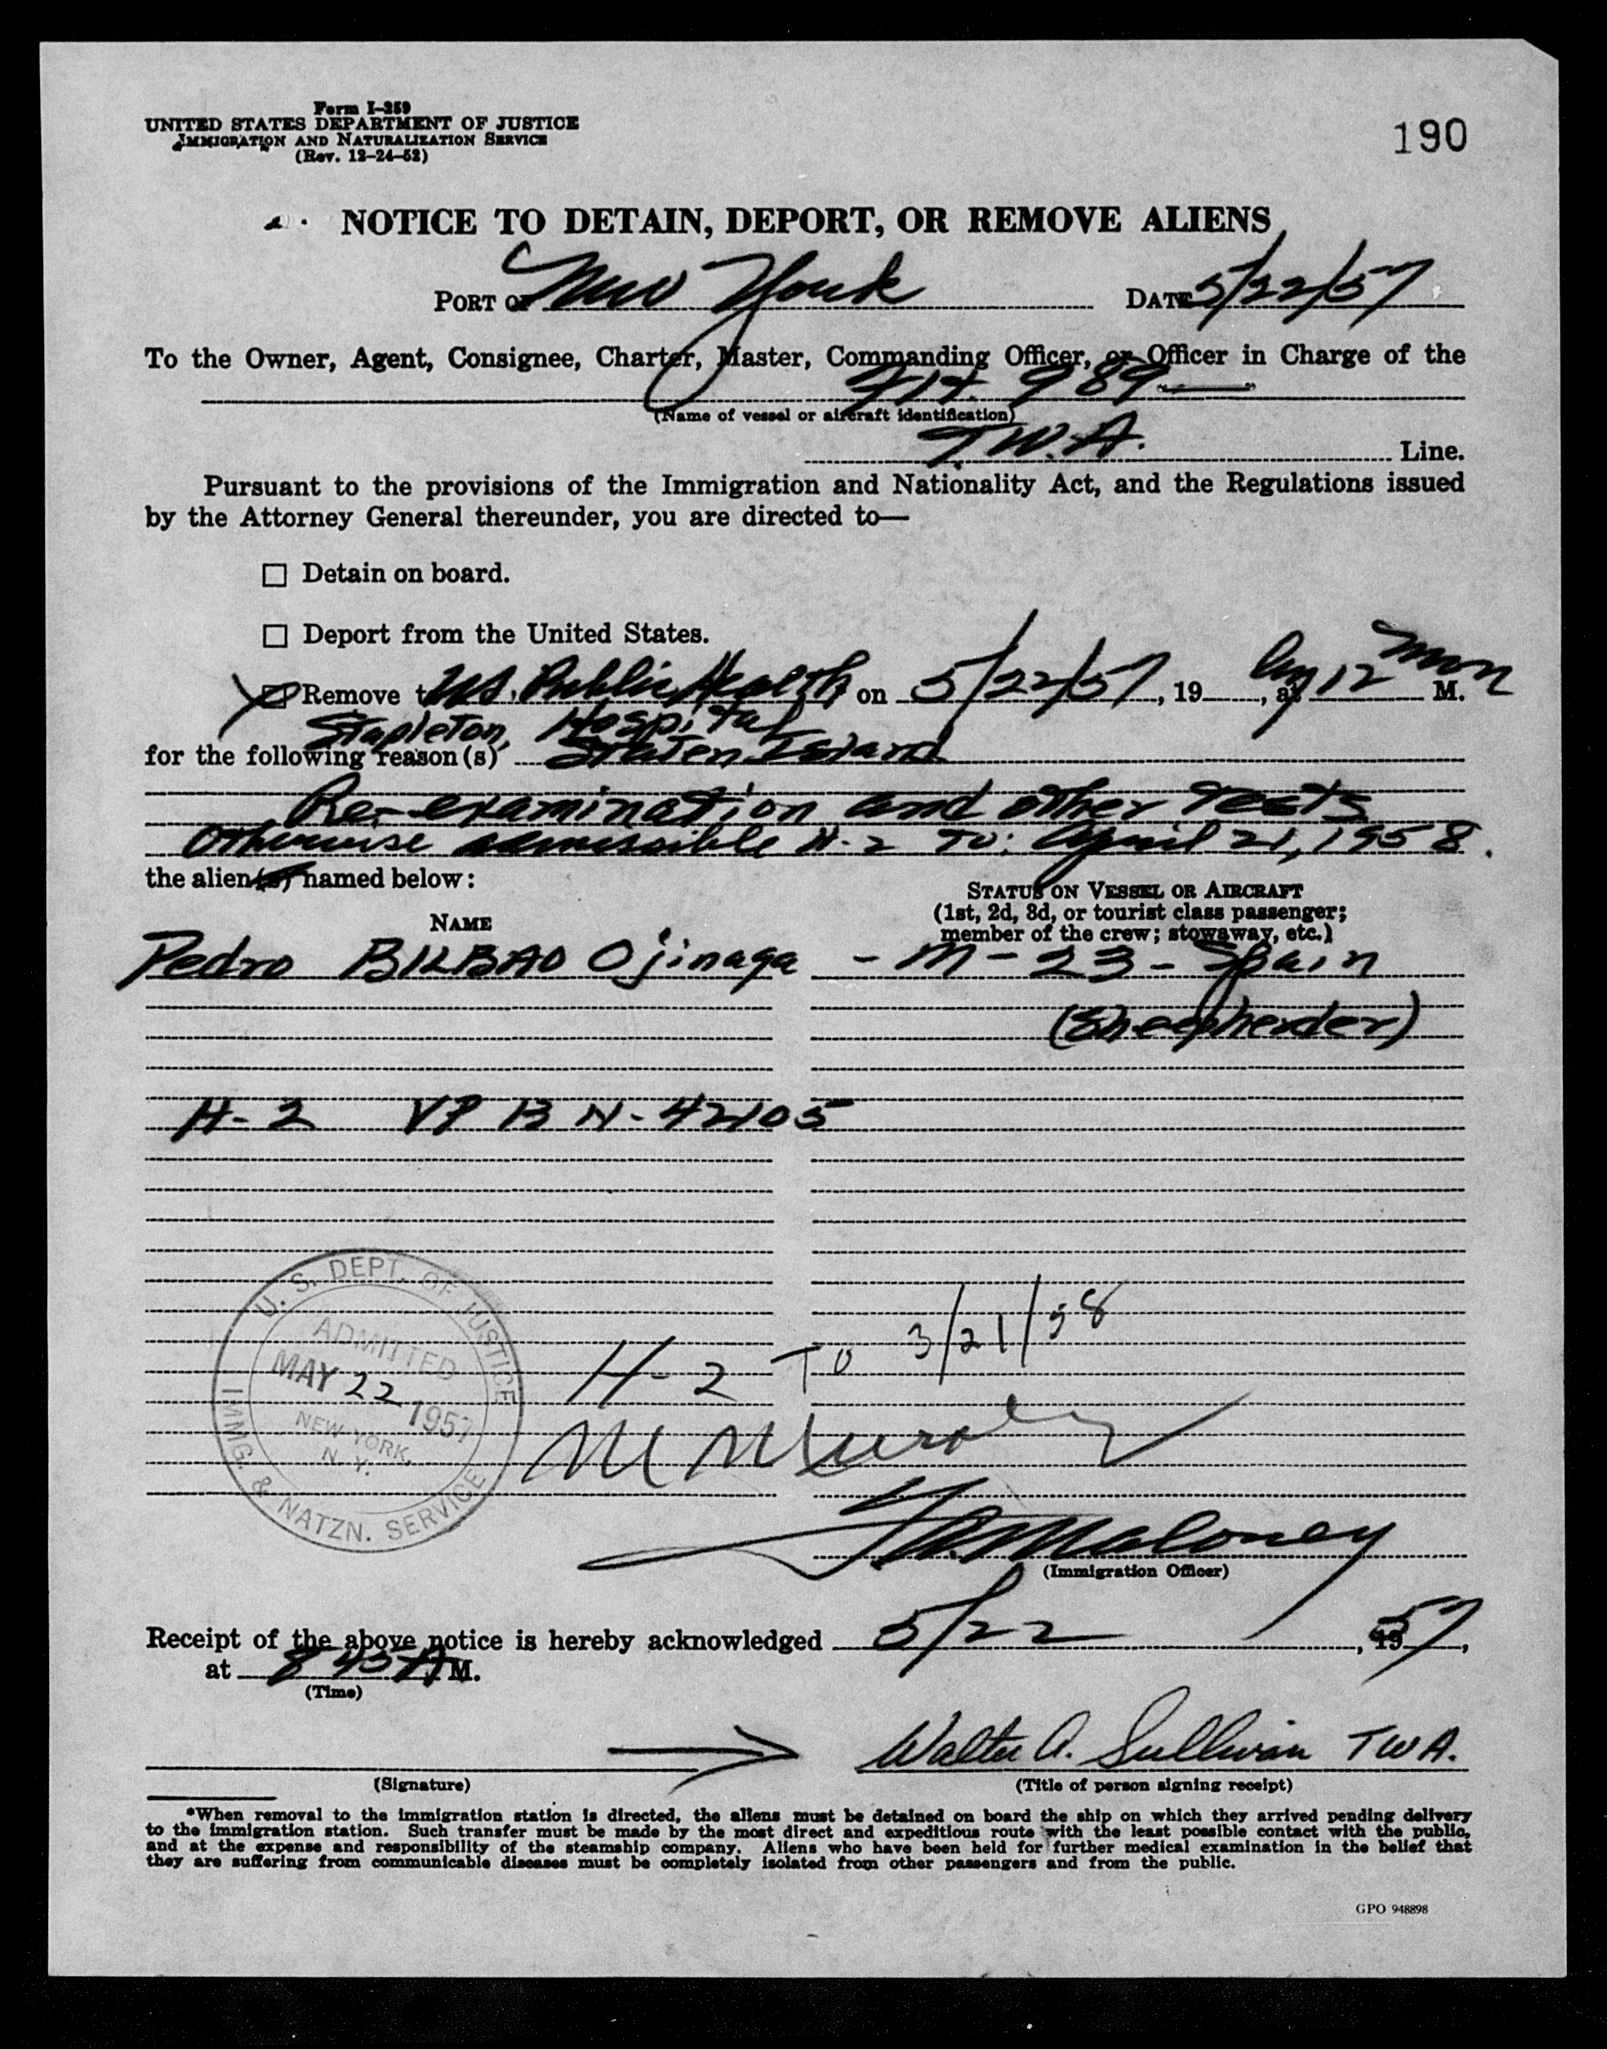 Form I-259
UNITED STATES DEPARTMENT OF JUSTICE
IMMIGRATION AND NATURALIZATION SERVICE
(Rev. 12-24-52)
190
NOTICE TO DETAIN, DEPORT, OR REMOVE ALIENS
PORT OF New York DATE 5/22/57
To the Owner, Agent, Consignee, Charter, Master, Commanding Officer, or Officer in Charge of the
Flt. 989
(Name of vessel or aircraft identification)
T.W.A. Line.
Pursuant to the provisions of the Immigration and Nationality Act, and the Regulations issued
by the Attorney General thereunder, you are directed to—
Detain on board.
Deport from the United States.
Remove to US. Public Health on 5/22/57, 19, at by 12 noon M.
Stapleton, Hospital
for the following reason(s) Staten Island
Re-examination and other tests
Otherwise admissible H-2 To: April 21, 1958.
the alien(s) named below:
STATUS ON VESSEL OR AIRCRAFT
(1st, 2d, 3d, or tourist class passenger;
NAME
member of the crew; stowaway, etc.)
Pedro BILBAO Ojinaga - M - 23 - Spain
(Sheepherder)
H-2 VP B N-42105
U. S. DEPT. OF JUSTICE
ADMITTED
MAY 22 1957
NEW YORK,
N. Y.
IMMG. & NATZN. SERVICE
H-2 To 3/21/58
Maloney
(Immigration Officer)
Receipt of the above notice is hereby acknowledged 5/22, 1957,
at 8 45 A M.
(Time)
Walter A. Sullivan TWA.
(Signature) (Title of person signing receipt)
*When removal to the immigration station is directed, the aliens must be detained on board the ship on which they arrived pending delivery
to the immigration station. Such transfer must be made by the most direct and expeditious route with the least possible contact with the public,
and at the expense and responsibility of the steamship company. Aliens who have been held for further medical examination in the belief that
they are suffering from communicable diseases must be completely isolated from other passengers and from the public.
GPO 948898